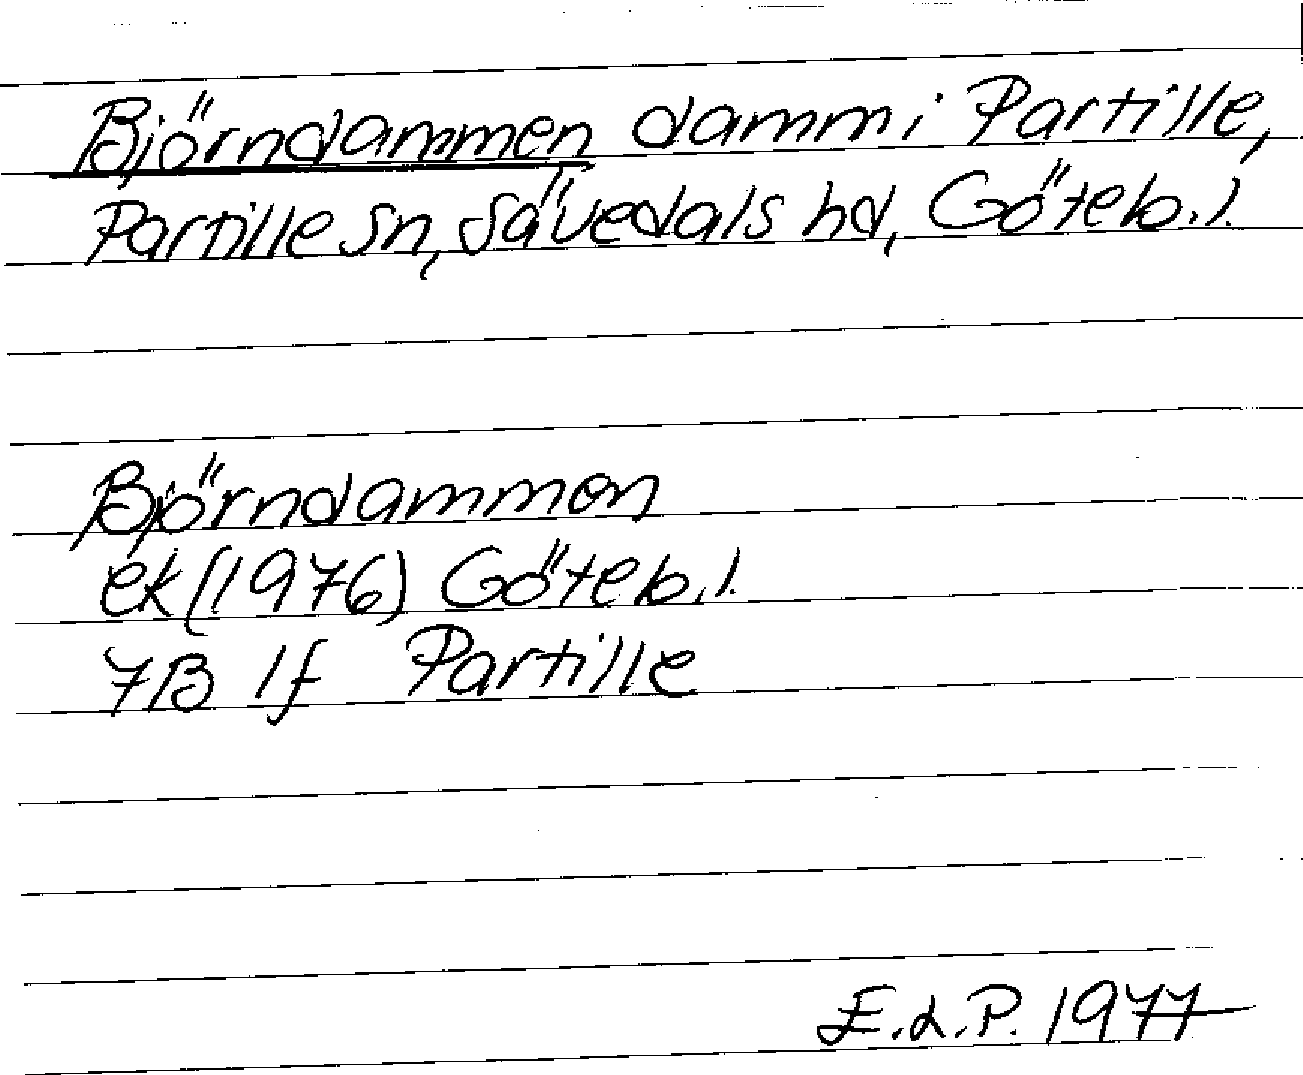 Björndammen damm i Partille,
Partille sn, Sävedals hd, Göteb. l.
Björndammen
ek (1976) Göteb. l.
7B 1f Partille
E.L.P. 1977